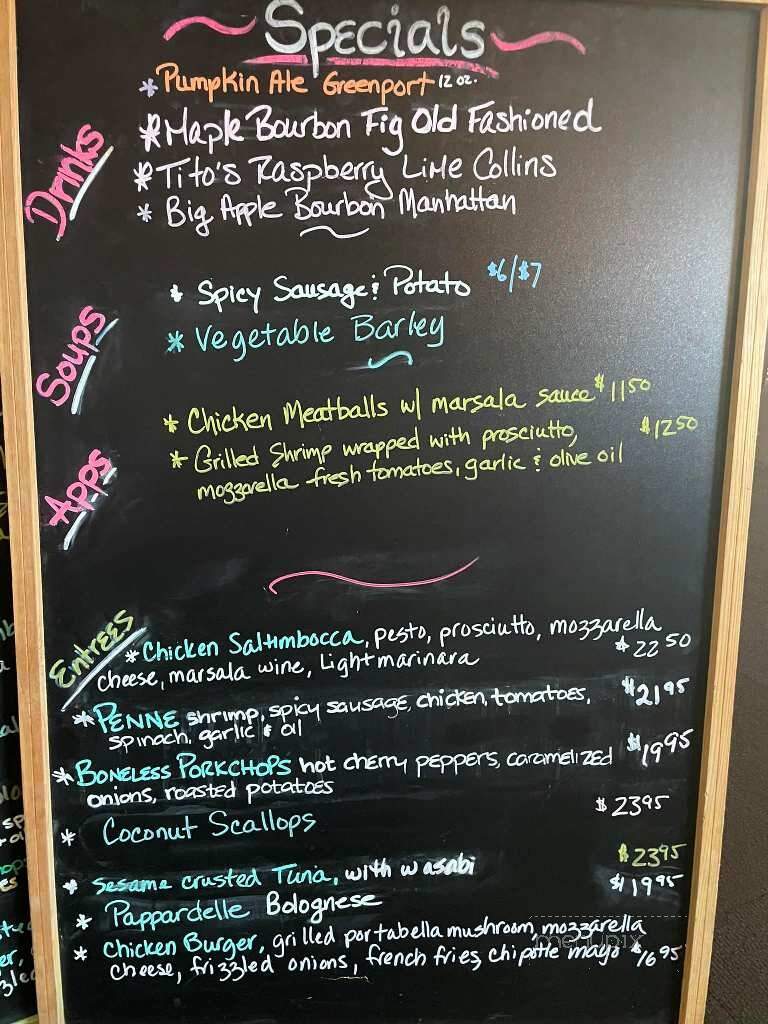 Specials
Drinks
* Pumpkin Ale Greenport 12 oz.
* Maple Bourbon Fig Old Fashioned
* Tito's Raspberry Lime Collins
* Big Apple Bourbon Manhattan
Soups
* Spicy Sausage & Potato $6/$7
* Vegetable Barley
Apps
* Chicken Meatballs w/ marsala sauce $11 50
* Grilled Shrimp wrapped with prosciutto, $12 50
mozzarella fresh tomatoes, garlic & olive oil
Entrees
* Chicken Saltimbocca, pesto, prosciutto, mozzarella
cheese, marsala wine, Light marinara $22 50
* Penne shrimp, spicy sausage, chicken, tomatoes, $21 95
spinach, garlic & oil
* Boneless Porkchops hot cherry peppers, caramelized $19 95
onions, roasted potatoes
* Coconut Scallops $23 95
* Sesame crusted Tuna, with wasabi $23 95
* Pappardelle Bolognese $19 95
* Chicken Burger, grilled portabella mushroom, mozzarella
cheese, frizzled onions, french fries, chipotle mayo $16 95
menupix